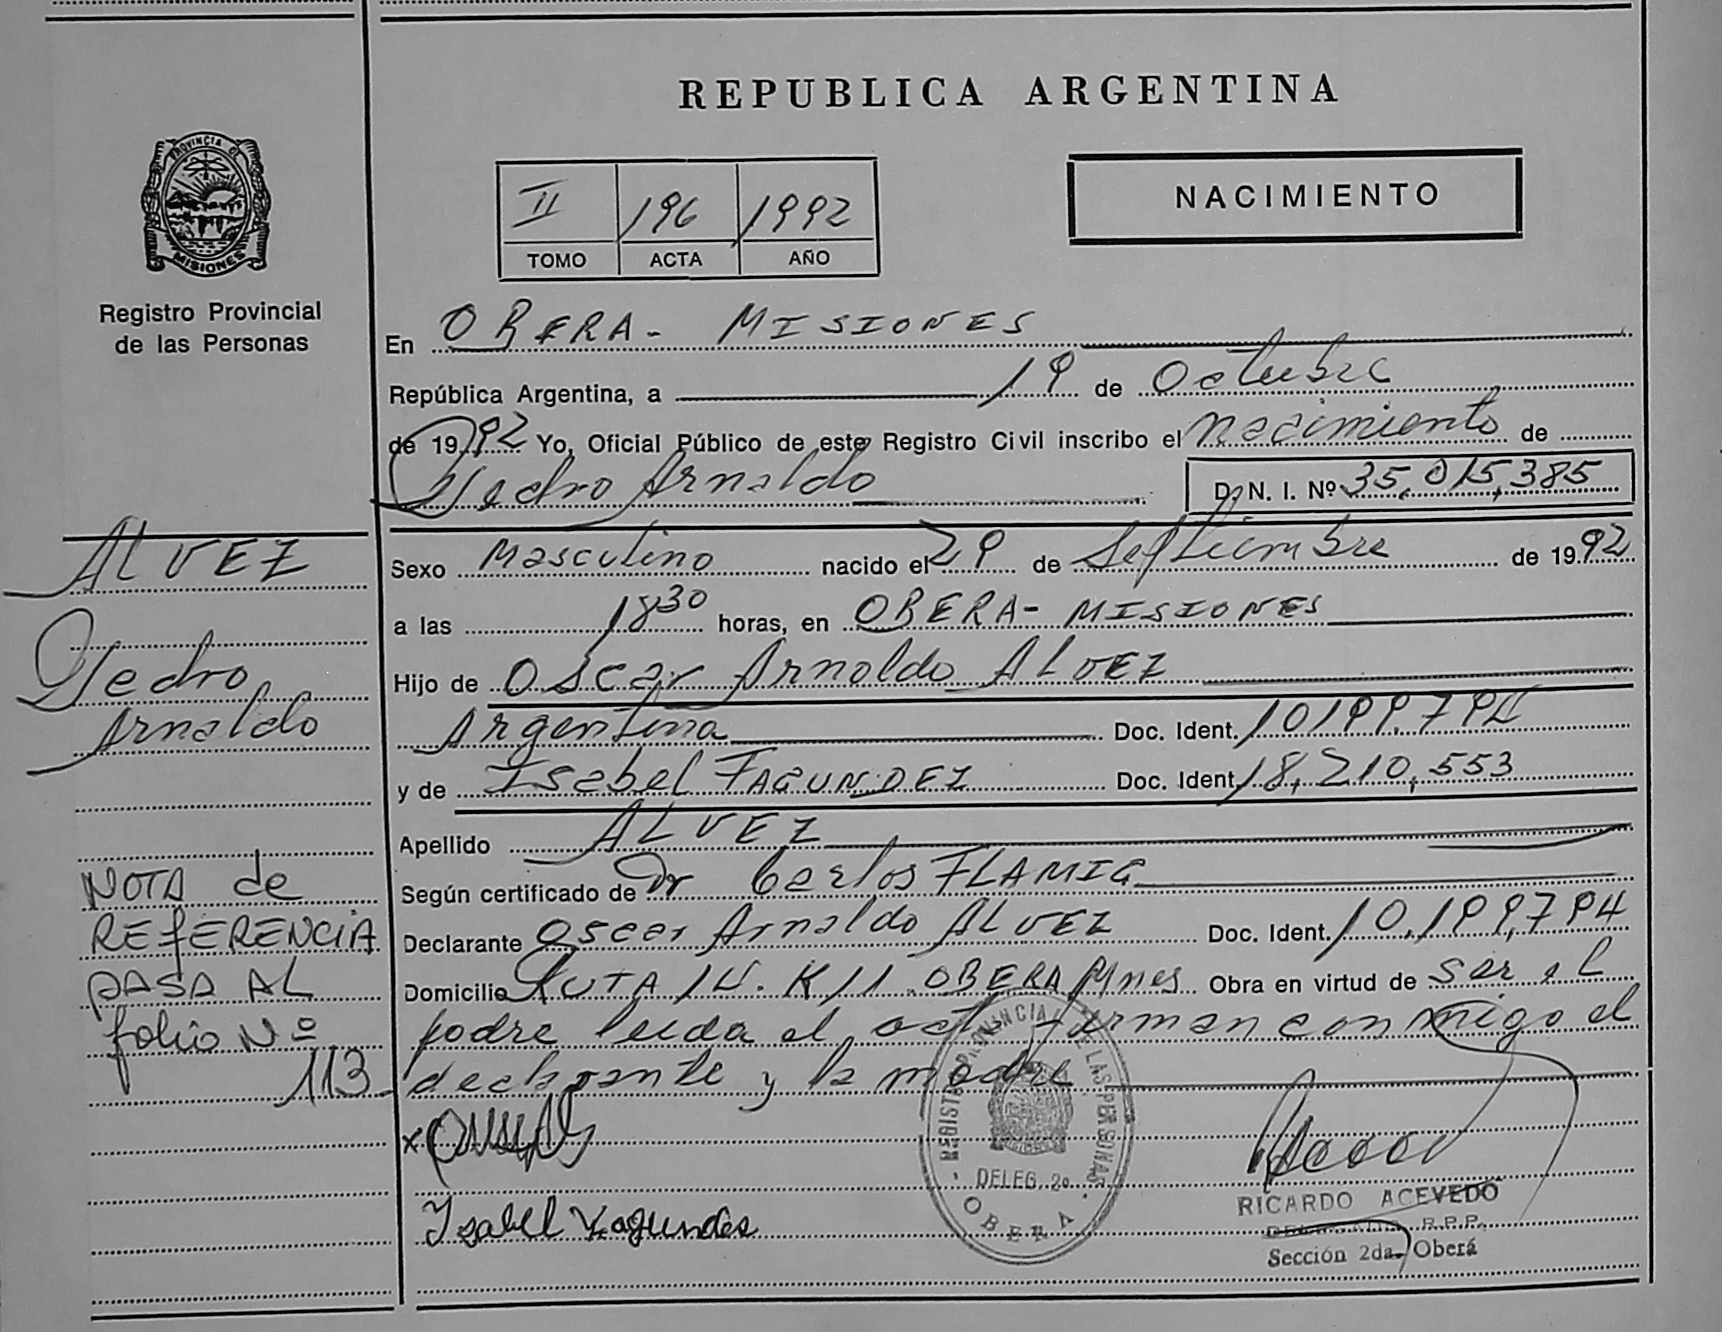 REPUBLICA ARGENTINA
PROVINCIA DE
MISIONES
Registro Provincial
de las Personas
II 196 1992
TOMO ACTA AÑO
NACIMIENTO
En OBERA - MISIONES
República Argentina, a 19 de Octubre
de 1992 Yo, Oficial Público de este Registro Civil inscribo el Nacimiento de
Pedro Arnaldo D. N. I. Nº 35,015,385
Sexo Masculino nacido el 29 de Septiembre de 1992
a las 18 30 horas, en OBERA - MISIONES
Hijo de Oscar Arnoldo ALVEZ
Argentina Doc. Ident. 10.199.794
y de Isabel FAGUNDEZ Doc. Ident. 18,210,553
Apellido ALVEZ
Según certificado de Dr Carlos FLAMIG
Declarante Oscar Arnaldo ALVEZ Doc. Ident. 10.199,794
Domicilio RUTA 14. K 11 OBERA Mnes Obra en virtud de ser el
padre leida el acta firman conmigo el
declarante y la madre
ALVEZ
Pedro
Arnaldo
NOTA de
REFERENCIA
PASA AL
folio Nº
113
Isabel Fagundes
REGISTRO PROVINCIAL DE LAS PERSONAS
DELEG. 2a.
OBERA
RICARDO ACEVEDO
R.P.P.
Sección 2da. Oberá